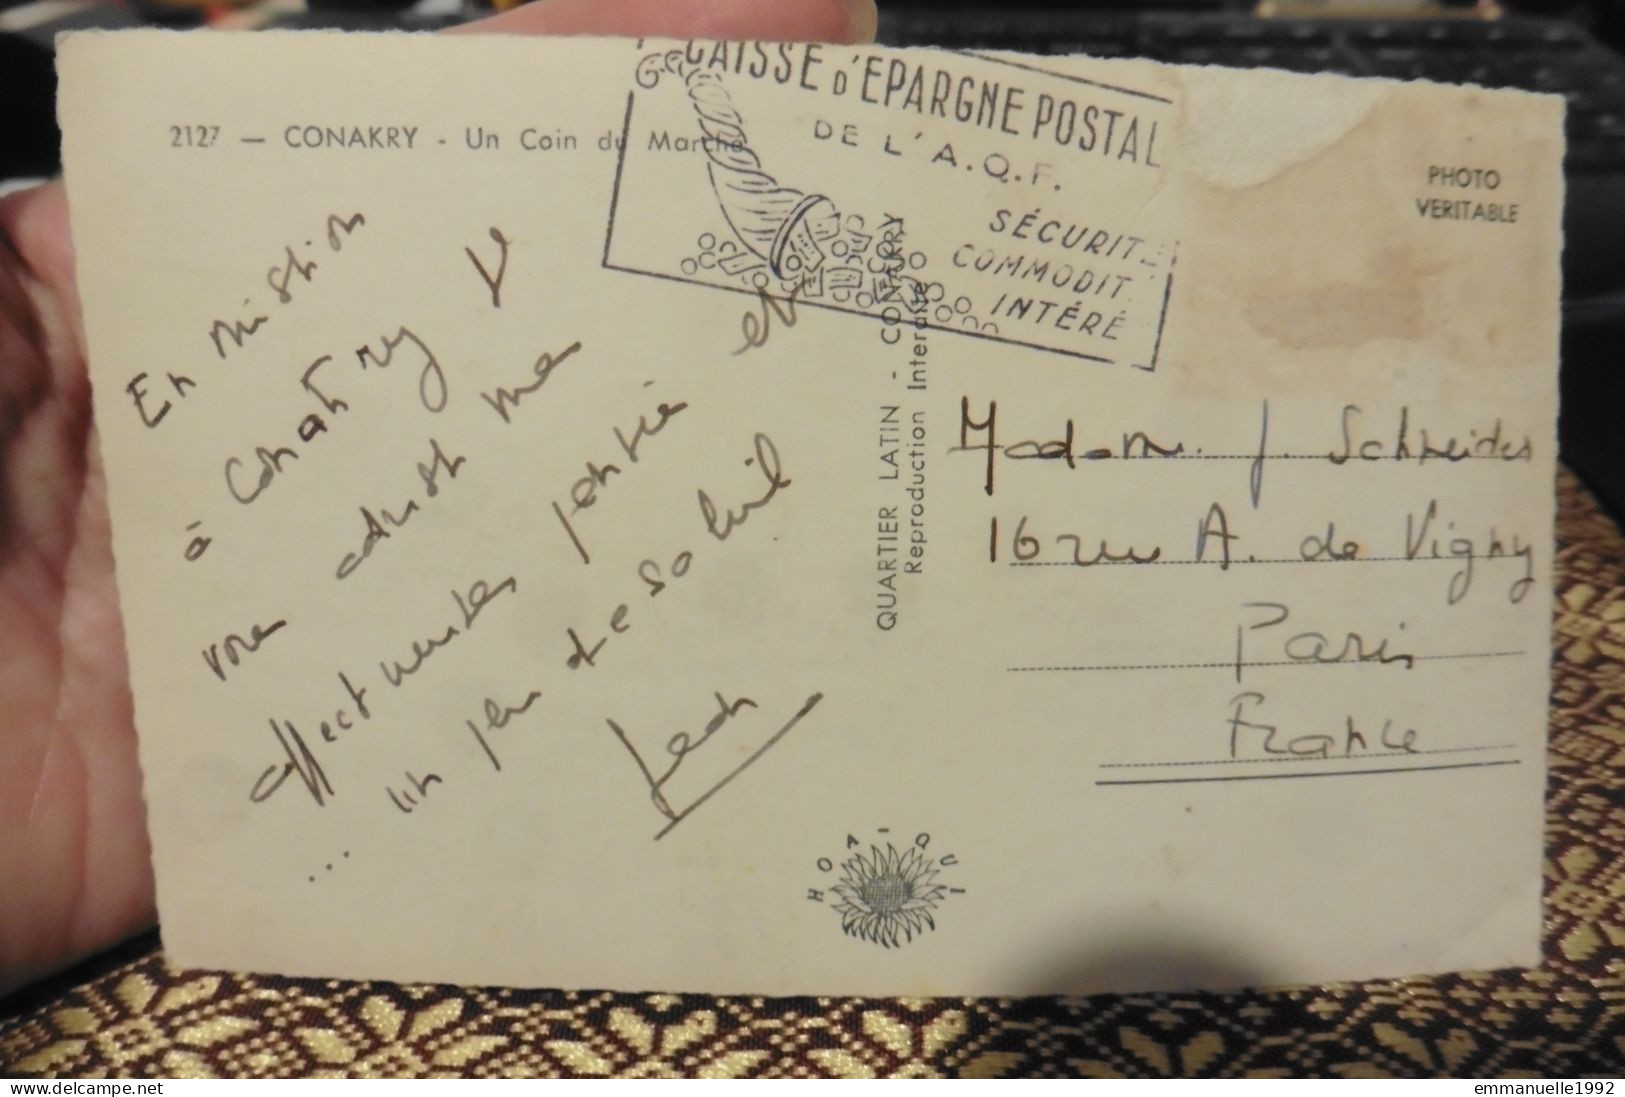 2127 — CONAKRY - Un Coin du Marché
CAISSE D'EPARGNE POSTAL
DE L'A.O.F.
SÉCURIT
COMMODIT
INTÉRÊ
PHOTO
VERITABLE
En mission
à Conakry je
vous adresse mes
affectueuses pensées et
un peu de soleil
...
Jean
QUARTIER LATIN - CONAKRY
Reproduction Interdite
Madame J. Schneider
16 rue A. de Vigny
Paris
France
HOA-QUI
emmanuelle1992
delcampe.net